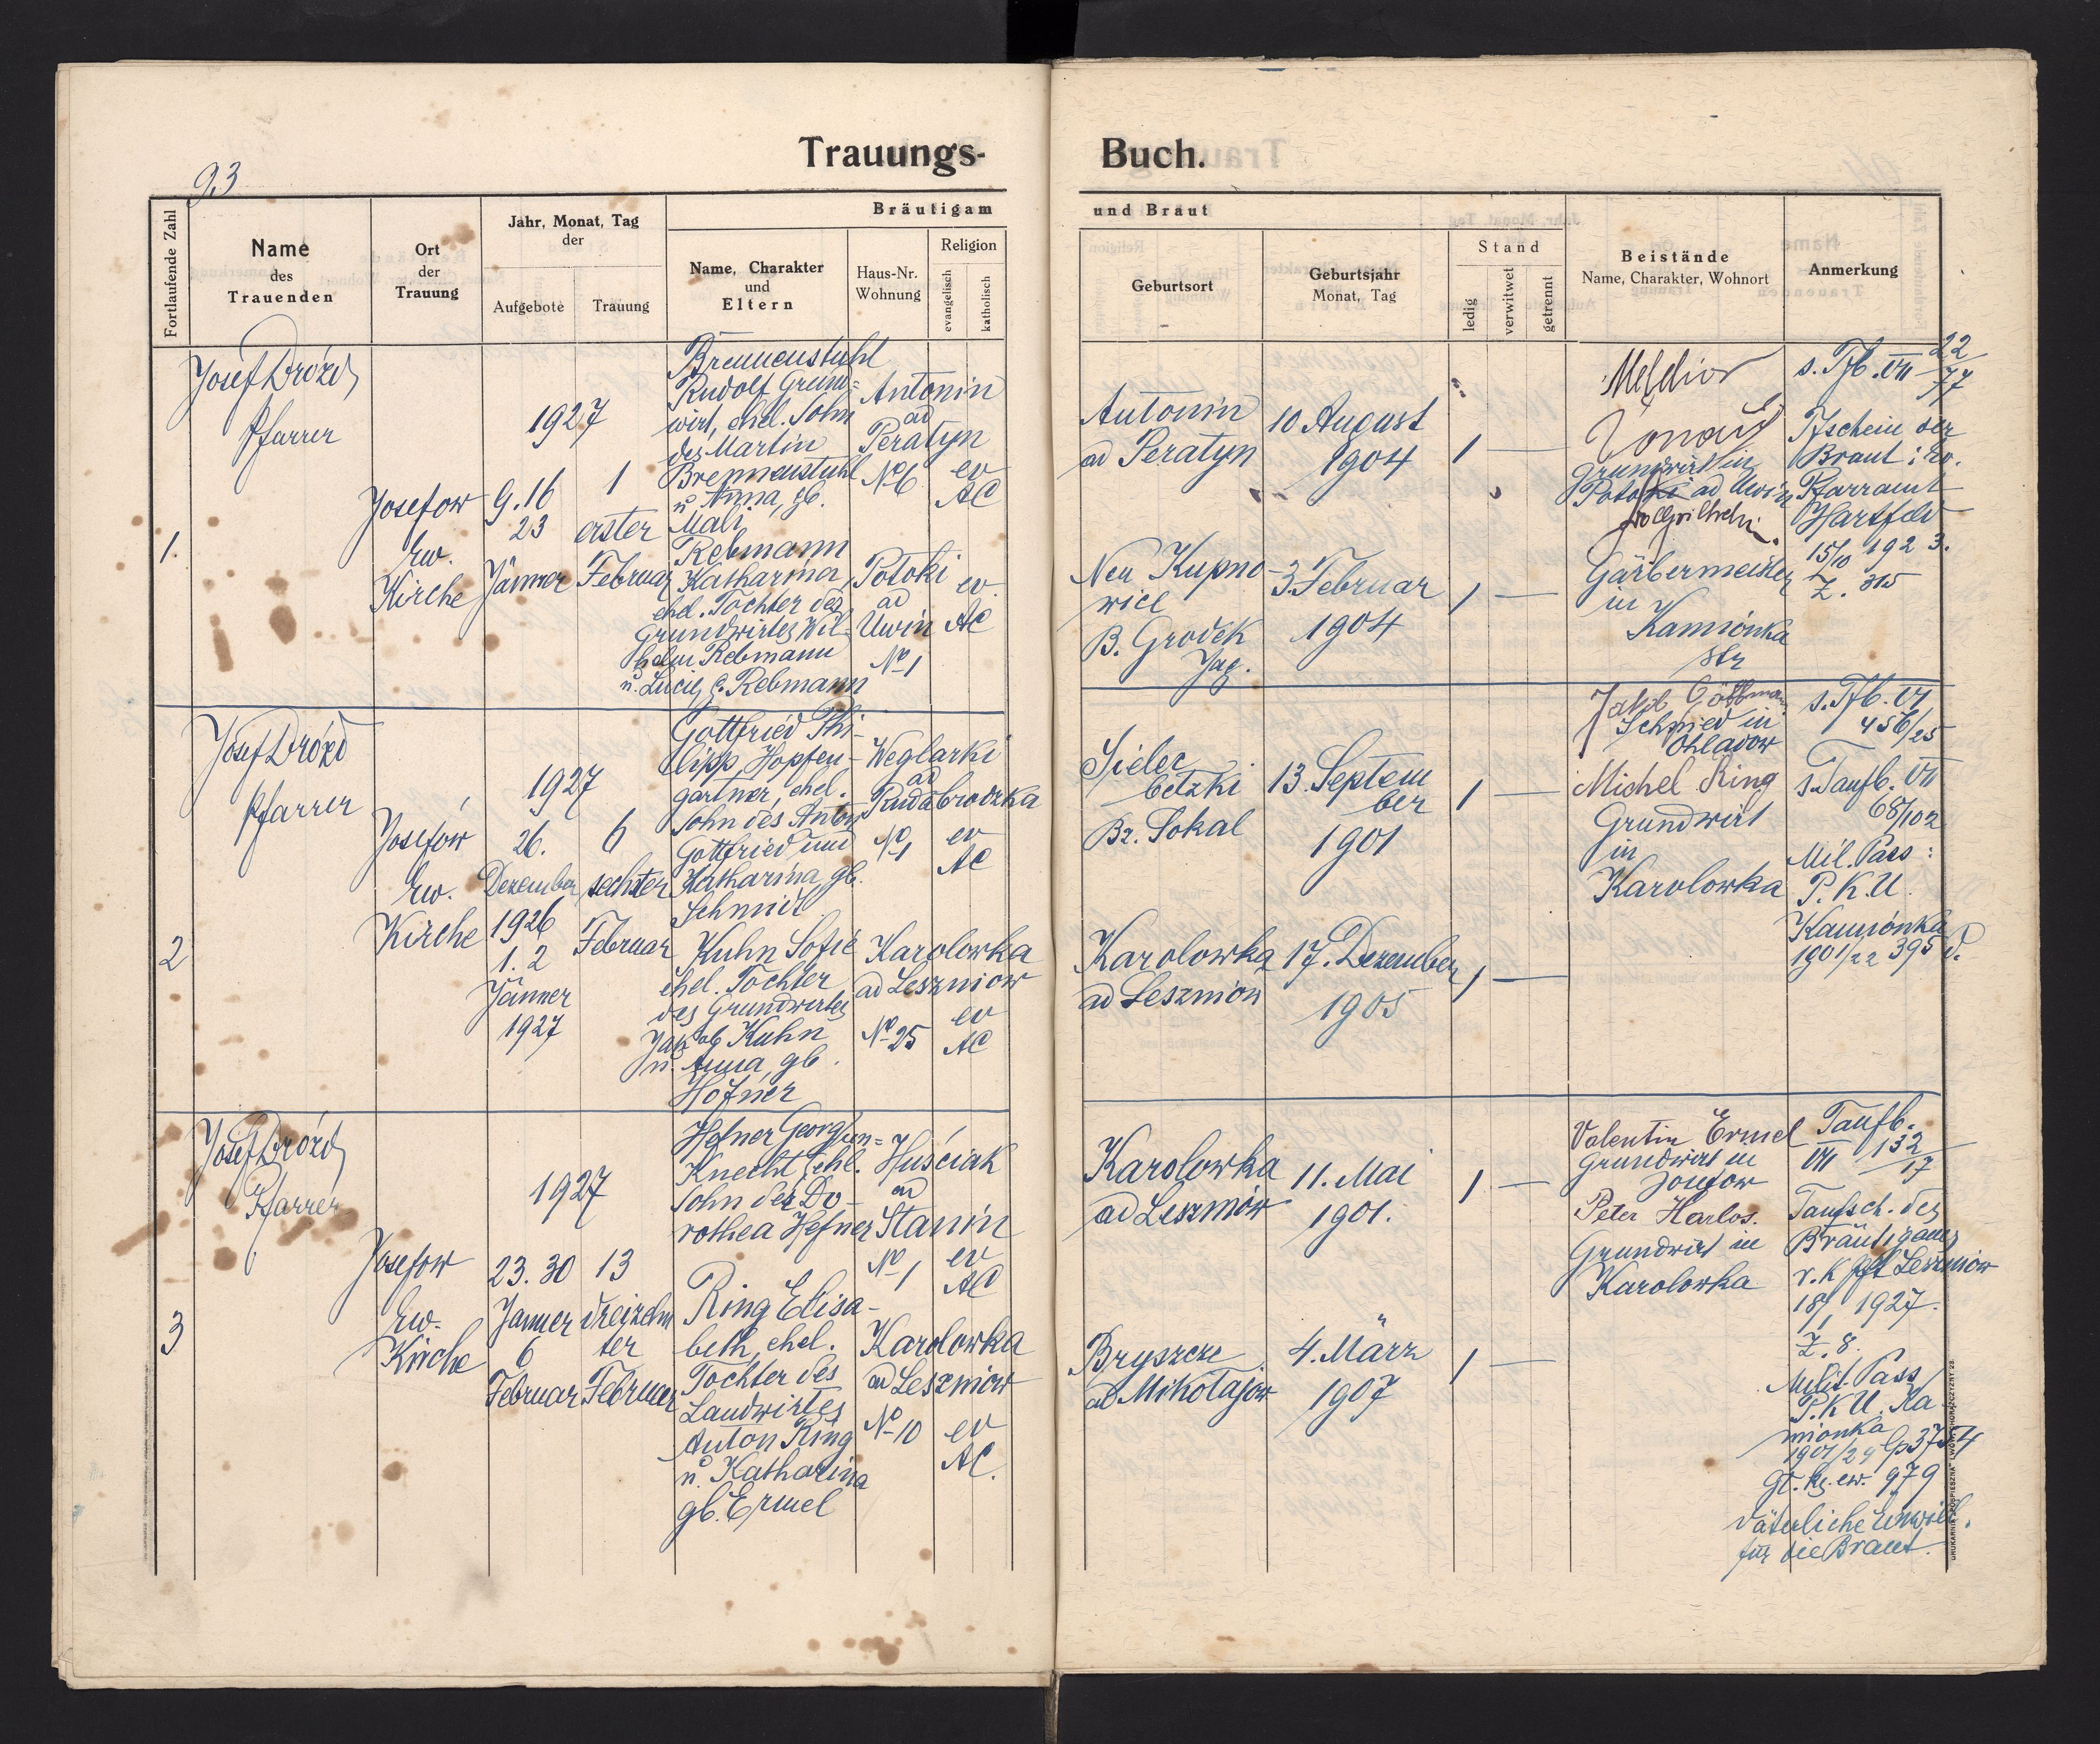 93
Trauungs-
Fortlaufende Zahl
Name
des
Trauenden
Ort
der
Trauung
Jahr, Monat, Tag
der
Aufgebote
Trauung
Bräutigam
Name, Charakter
und
Eltern
Haus-Nr.
Wohnung
Religion
evangelisch
katholisch
1.
Josef Drózd
Pfarrer
Josefow
ew.
Kirche
1927
9. 16
23
Jänner
1
erster
Februar
Brennenstuhl
Rudolf Grund=
wirt, ehel. Sohn
des Martin
Brennenstuhl
u. Anna, gb.
Mali
Antonin
ad
Peratyn
No 6
ev
AC
Rebmann
Katharina,
ehel. Tochter des
Grundwirtes Wil-
helm Rebmann
u. Lucie, g. Rebmann
Potoki
ad
Uwin
No 1
ev.
AC
2
Josef Drózd
Pfarrer
Josefów
ew.
Kirche
1927
26.
Dezember
1926
1. 2
Jänner
1927
6
sechster
Februar
Gottfried Phi-
lipp Hopfen-
gärtner, ehel.
Sohn des Anton
Gottfried und
Katharina, gb.
Schmidt
Weglarki
ad
Rudabrodzka
No 1
ev
AC
Kuhn Sofie
ehel. Tochter
des Grundwirtes
Jakob Kuhn
u. Anna, gb.
Hofner
Karolowka
ad Leszniow
No 25
ev
AC
3
Josef Drózd
Pfarrer
Josefow
ew.
Kirche
1927
23. 30
Jänner
6
Februar
13
dreizehn
ter
Februar
Hefner Georg
Knecht, ehl.
Sohn der Do-
rothea Hefner
Huściak
ad
Stanin
No 1
ev
AC
Ring Elisa-
beth, ehel.
Tochter des
Landwirtes
Anton Ring
u. Katharina
gb. Ermel
Karolowka
ad Leszniow
No 10
ev
AC.
Buch.
und Braut
Geburtsort
Geburtsjahr
Monat, Tag
Stand
ledig
verwitwet
getrennt
Beistände
Name, Charakter, Wohnort
Anmerkung
Antonin
ad Peratyn
10 August
1904
1 —
Melchior
Grundwirt in
Potoki ad Uwin
s. Tfb. VII 22/77
Tfschein der
Braut: ev.
Pfarramt
Hartfeld
15/10 1923.
Z. 315
Neu Kupno-
wice
B. Grodek
Jag.
3. Februar
1904
1 —
Gärbermeister
in
Kamionka
Str
Sielec
betzki
Bz. Sokal
13. Septem
ber
1901
1 —
Jakob
Schmied in
Ohladow
Michel Ring
Grundwirt
in
Karolowka
s. Tfb. VI
456/25
s. Taufb. VII
68/102
Mil. Pass:
P.K.U.
Kamionka
1901/22 395
Karolowka
ad Leszniow
17. Dezember
1905
1 —
Karolowka
ad Leszniow
11. Mai
1901.
1 —
Valentin Ermel
Grundwirt in
Josefow
Peter Harlos.
Grundwirt in
Karolowka
Taufb.
VII 132/17
Taufsch. des
Bräutigams
r. k. Leszniow
18/1 1927.
Z. 8.
Milit. Pass
P.K.U. Ka
mionka
979
väterliche Einwill.
für die Braut.
Bryszcze
ad Mikołajow
4. März
1907
1 —